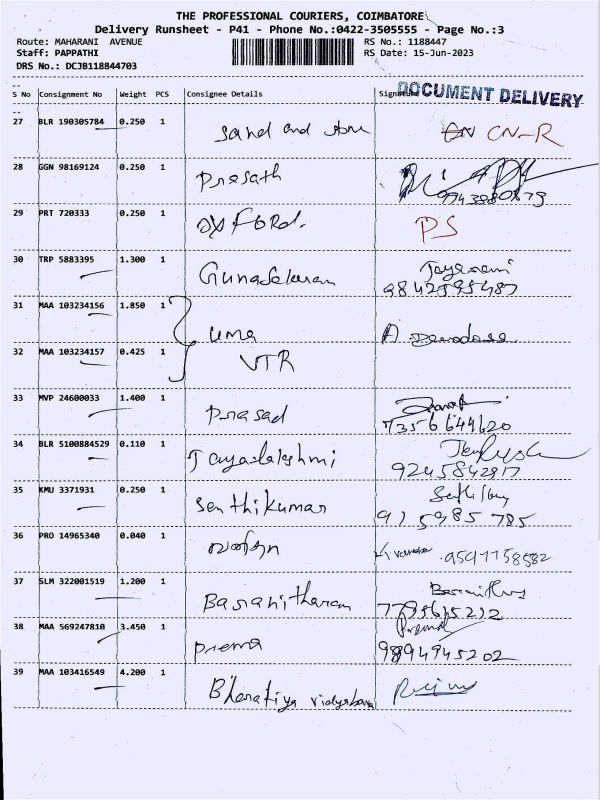 THE PROFESSIONAL COURIERS, COIMBATORE
Delivery Runsheet - P41 - Phone No.:0422-3505555 - Page No.:3
Route: MAHARANI AVENUE RS No.: 1188447
Staff: PAPPATHI RS Date: 15-Jun-2023
DRS No.: DCJB118844703
DOCUMENT DELIVERY
S No Consignment No Weight PCS Consignee Details Signature
27 BLR 190305784 0.250 1 Sand and stone CN-R
28 GGN 98169124 0.250 1 Prasath
29 PRT 720333 0.250 1 OXFORD. PS
30 TRP 5883395 1.300 1 Gunasekaran
9842595487
31 MAA 103234156 1.850 1 uma A Devadass
32 MAA 103234157 0.425 1 VTR
33 MVP 24600033 1.400 1 Prasad
7356644620
34 BLR 5100884529 0.110 1 Jayalakshmi
9245842817
35 KMU 3371931 0.250 1 Senthikumar
915985785
36 PRO 14965340 0.040 1 9597758582
37 SLM 322001519 1.200 1 Baranitharan
38 MAA 569247810 3.450 1 Prema Prema
9894945202
39 MAA 103416549 4.200 1 Bharatiya vidya